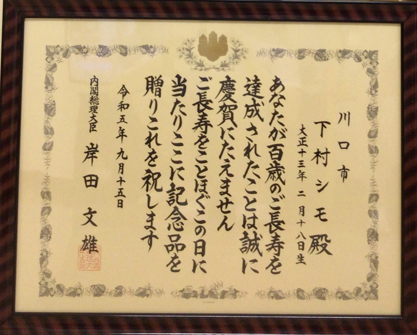 川口市
下村シモ殿
大正十三年二月十八日生
あなたが百歳のご長寿を
達成されたことは誠に
慶賀にたえません
ご長寿をことほぐこの日に
当たりここに記念品を
贈りこれを祝します
令和五年九月十五日
内閣総理大臣 岸田文雄